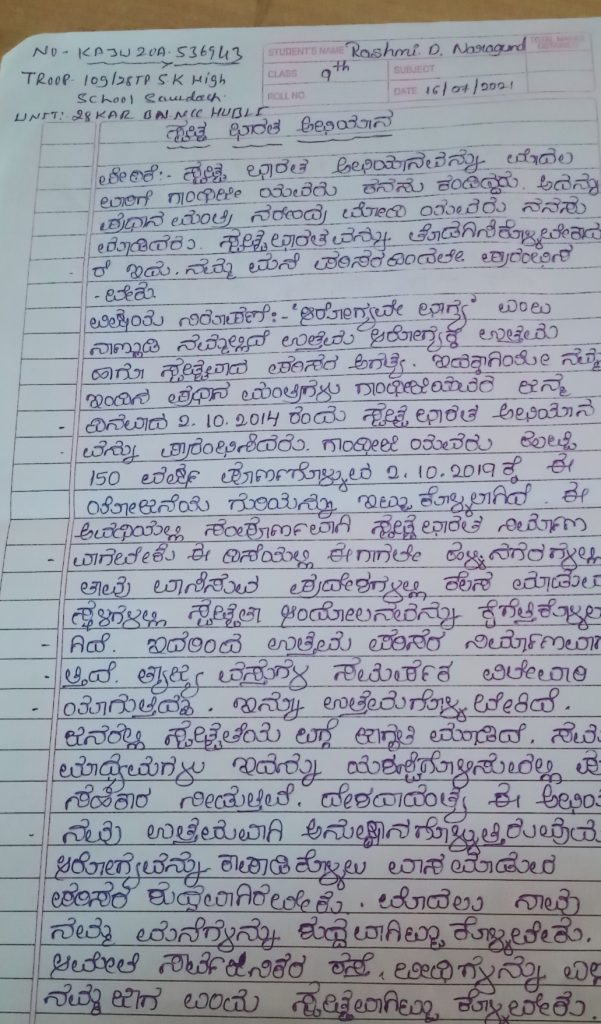 NO - KAJU20A536943
TROOP 109/28TP S K High
School Saundach
UNIT: 28 KAR BN NCC HUBLI
STUDENT'S NAME Rashmi. D. Naragund
TOTAL MARKS OBTAINED
CLASS 9th SUBJECT
ROLL NO. DATE 16/07/2021
ಸ್ವಚ್ಛ ಭಾರತ ಅಭಿಯಾನ
ಪೀಠಿಕೆ:- ಸ್ವಚ್ಛ ಭಾರತ ಅಭಿಯಾನವನ್ನು ಮೊದಲ
ಬಾರಿಗೆ ಗಾಂಧೀಜಿ ಯವರು ಕನಸು ಕಂಡಿದ್ದರು. ಅದನ್ನು
ಪ್ರಧಾನ ಮಂತ್ರಿ ನರೇಂದ್ರ ಮೋದಿ ಯವರು ನನಸು
ಮಾಡಿದರು. ಸ್ವಚ್ಛಭಾರತವನ್ನು
ರೆ ಇದು. ನಮ್ಮ ಮನೆ ಪರಿಸರದಿಂದಲೇ ಪ್ರಾರಂಭಿಸ
- ಬೇಕು
ವಿಷಯ ನಿರೂಪಣೆ:- 'ಆರೋಗ್ಯವೇ ಭಾಗ್ಯ' ಎಂಬ
ನಾಣ್ಣುಡಿ ನಮ್ಮಲ್ಲಿದೆ ಉತ್ತಮ ಆರೋಗ್ಯಕ್ಕೆ ಉತ್ತಮ
ಹಾಗೂ ಸ್ವಚ್ಛವಾದ ಪರಿಸರ ಅಗತ್ಯ. ಇದಕ್ಕಾಗಿಯೇ ನಮ್ಮ
ಇಂದಿನ ಪ್ರಧಾನ ಮಂತ್ರಿಗಳು ಗಾಂಧೀಜಿಯವರ ಜನ್ಮ
- ದಿನವಾದ 2.10.2014 ರಂದು ಸ್ವಚ್ಛ ಭಾರತ ಅಭಿಯಾನ
- ವನ್ನು ಪ್ರಾರಂಭಿಸಿದರು. ಗಾಂಧೀಜಿ ಯವರು
150 ವರ್ಷ ಪೂರ್ಣಗೊಳ್ಳುವ 2.10.2019 ಕ್ಕೆ ಈ
ಯೋಜನೆಯ ಗುರಿಯನ್ನು ಇಟ್ಟು ಕೊಳ್ಳಲಾಗಿದೆ. ಈ
ಅವಧಿಯಲ್ಲಿ ಸಂಪೂರ್ಣವಾಗಿ ಸ್ವಚ್ಛ ಭಾರತ ನಿರ್ಮಾಣ
- ವಾಗಬೇಕು ಈ ದಿಸೆಯಲ್ಲಿ ಈಗಾಗಲೇ ಹಳ್ಳಿ ನಗರಗಳಲ್ಲಿ
ತಾವು ವಾಸಿಸುವ ಪ್ರದೇಶಗಳಲ್ಲಿ ಕೆಲಸ ಮಾಡುವ
ಸ್ಥಳಗಳಲ್ಲಿ ಸ್ವಚ್ಛತಾ ಆಂದೋಲನವನ್ನು ಕೈಗೆತ್ತಿಕೊಳ್ಳಲಾ
- ಗಿದೆ. ಇದರಿಂದ ಉತ್ತಮ ಪರಿಸರ ನಿರ್ಮಾಣವಾಗು
- ತ್ತಿದೆ. ತ್ಯಾಜ್ಯ ವಸ್ತುಗಳ ಸಮರ್ಪಕ ವಿಲೇವಾರಿ
- ಯಾಗುತ್ತಿದೆ. ಇನ್ನು ಉತ್ತಮಗೊಳ್ಳ ಬೇಕಿದೆ.
ಜನರಲ್ಲಿ ಸ್ವಚ್ಛತೆಯ ಬಗ್ಗೆ ಜಾಗೃತಿ ಮೂಡಿದೆ. ಸಮೂ
ಮಾಧ್ಯಮಗಳು ಇದನ್ನು ಯಶಸ್ವಿಗೊಳಿಸುವಲ್ಲಿ
ಸಹಕಾರ ನೀಡುತ್ತಿವೆ. ದೇಶದಾದ್ಯಂತ ಈ ಅಭಿಯಾ
- ನವು ಉತ್ತಮವಾಗಿ ಅನುಷ್ಠಾನಗೊಳ್ಳುತ್ತಿರುವುದು
ಆರೋಗ್ಯವನ್ನು ಕಾಪಾಡಿಕೊಳ್ಳಲು ವಾಸ ಮಾಡುವ
ಪರಿಸರ ಶುದ್ಧವಾಗಿರಬೇಕು. ಮೊದಲು ನಾವು
ನಮ್ಮ ಮನೆಗಳನ್ನು ಶುದ್ಧವಾಗಿಟ್ಟು ಕೊಳ್ಳಬೇಕು.
ಆಮೇಲೆ ಸಾರ್ವಜನಿಕರ ರಸ್ತೆ, ಬೀದಿಗಳನ್ನು ಎಲ್ಲ
ನಮ್ಮ ಜಾಗ ಎಂದು ಸ್ವಚ್ಛವಾಗಿಟ್ಟು ಕೊಳ್ಳಬೇಕು.